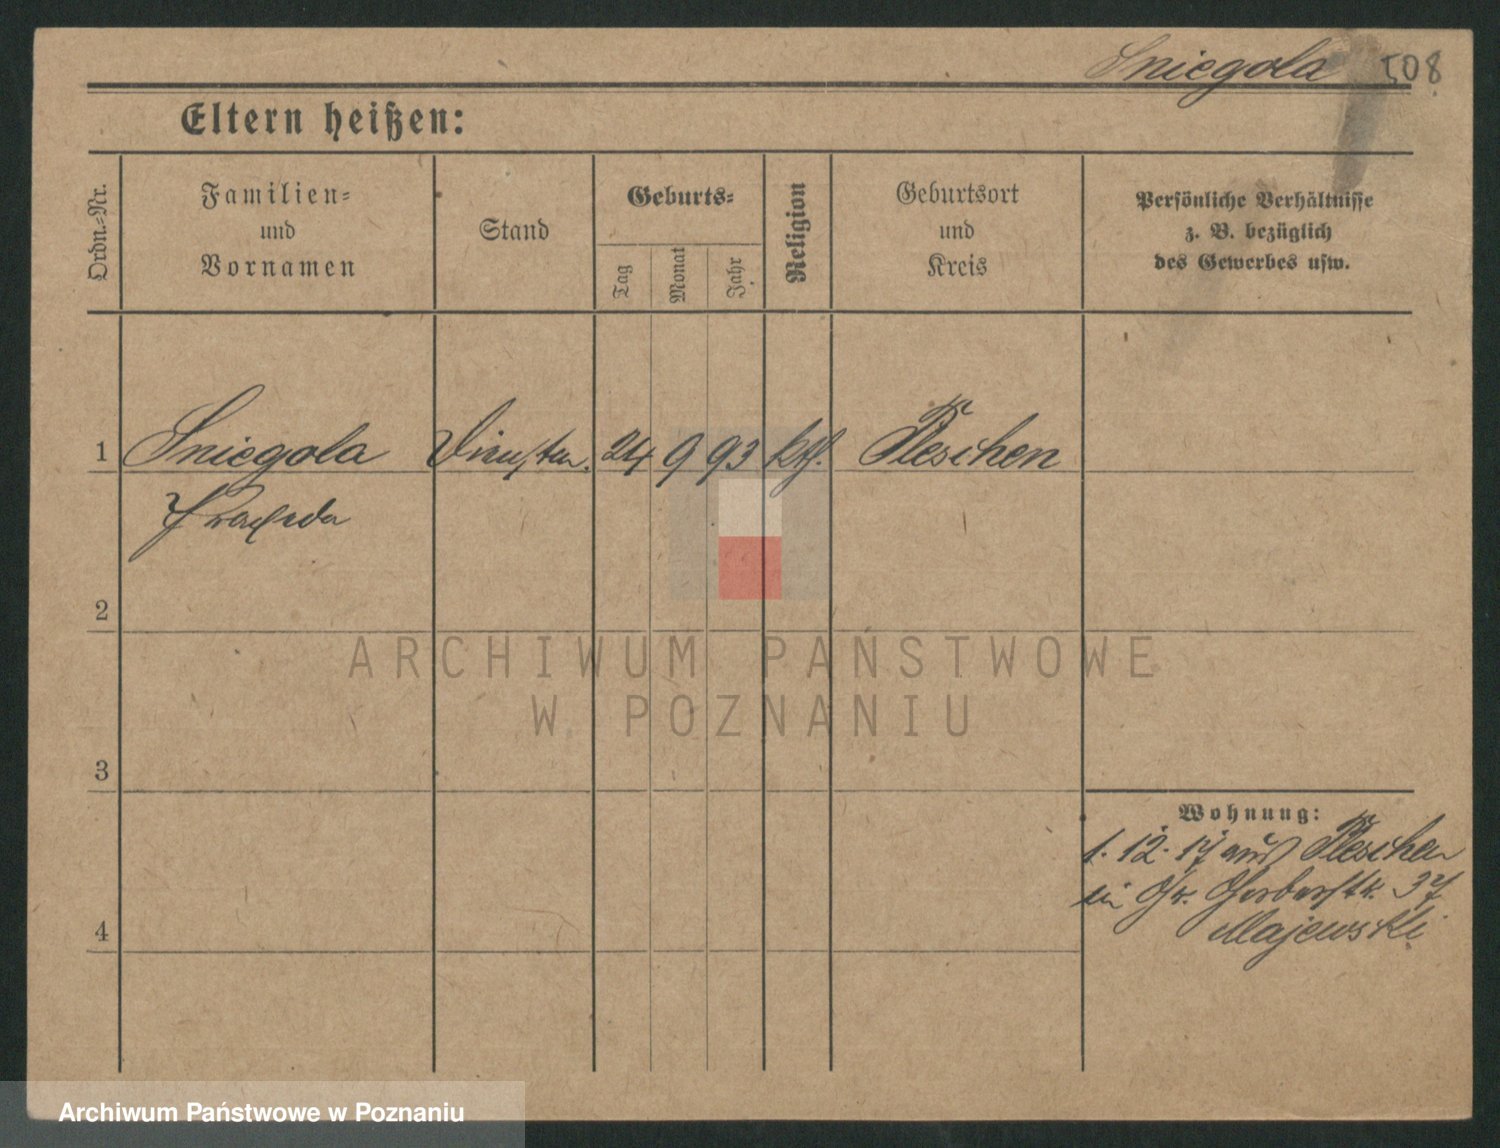 Sniegola 508
Eltern heißen:
Ordn.-Nr.
Familien-
und
Vornamen
Stand
Geburts-
Tag
Monat
Jahr
Religion
Geburtsort
und
Kreis
Persönliche Verhältnisse
z. B. bezüglich
des Gewerbes usw.
1 Sniegola 24 9 93 kth. Pleschen
Praxeda
2
3
4
Wohnung:
1. 12. 17 aus Pleschen
in Gr. Gerberstr. 37
Majewski
ARCHIWUM PAŃSTWOWE
W POZNANIU
Archiwum Państwowe w Poznaniu